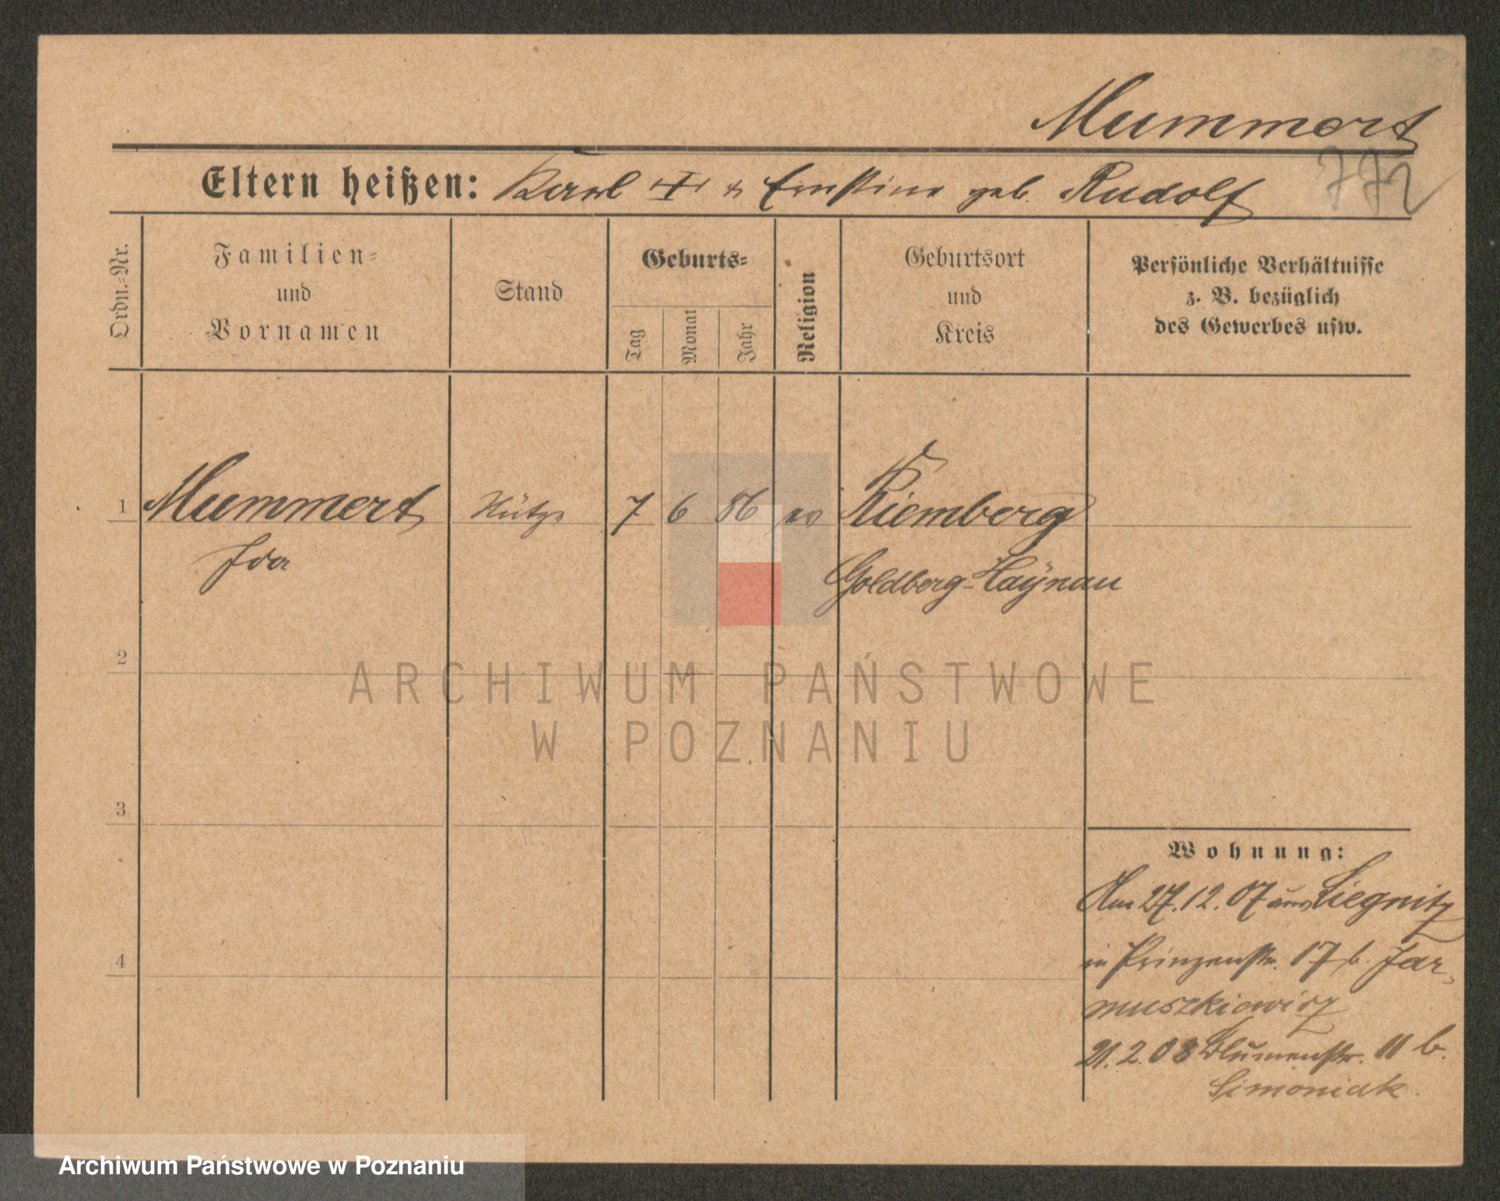 Mummert
772
Eltern heißen: Karl † u. Ernstine geb. Rudolf
Ordn.-Nr.
Familien-
und
Vornamen
Stand
Geburts-
Tag
Monat
Jahr
Religion
Geburtsort
und
Kreis
Persönliche Verhältnisse
z. B. bezüglich
des Gewerbes usw.
1 Mummert Stütze 7 6 86 ev Riemberg
Ida Goldberg-Haynau
2
3
4
Wohnung:
Am 27.12.07 aus Liegnitz
in Prinzenstr. 17 b. Jar-
muszkiewicz
21.2.08 Blumenstr. 11 b.
Simoniak.
ARCHIWUM PAŃSTWOWE
W POZNANIU
Archiwum Państwowe w Poznaniu